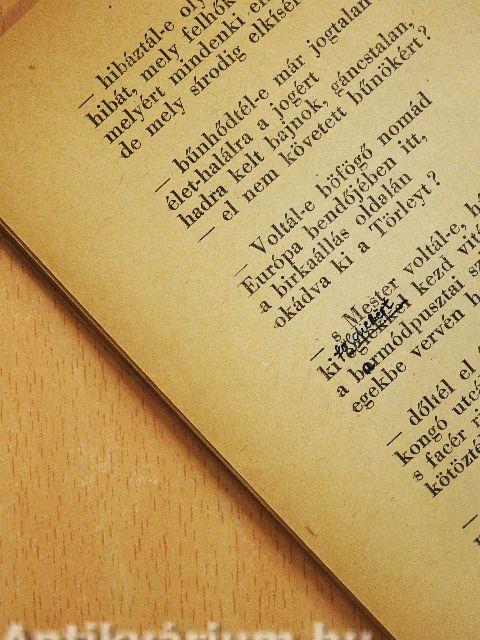 — hibáztál-e
hibát, mely felhők
melyért mindenki
de mely sírodig elkísér
— bűnhődtél-e már jogtalan
élet-halálra a jogért
hadra kelt bajnok, gáncstalan,
— el nem követett bűnökért?
— Voltál-e böfögő nomád
Európa bendőjében itt,
a birkaállás oldalán
okádva ki a Törleyt?
— s Mester voltál-e,
ki kezd
a barmódpusztai
egekbe vervén
— dőltél el
kongó
s facér
Antikvárium.hu